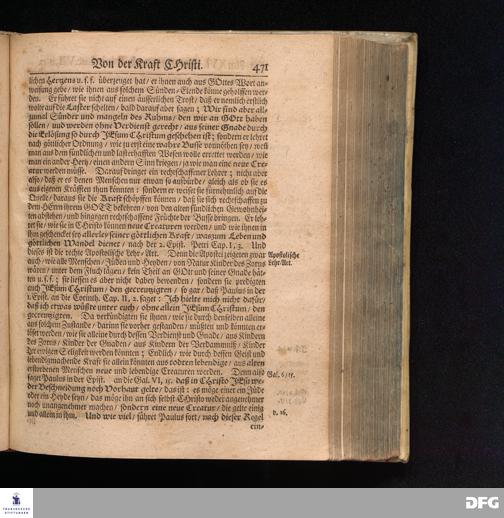 Von der Kraft CHristi. 471
lichen Hertzens u. s. f. überzeuget hat / er ihnen auch aus GOttes Wort an-
weisung gebe / wie ihnen aus solchem Sünden-Elende könne geholffen wer-
den. Er führet sie nicht auf einen äuserlichen Trost / daß er nemlich erstlich
wolte auf die Laster schelten / bald darauf aber sagen; Wir sind aber all-
zumal Sünder und mangeln des Ruhms / den wir an GOtt haben
sollen / und werden ohne Verdienst gerecht / aus seiner Gnade durch
die Erlösung so durch JEsum Christum geschehen ist; sondern er lehret
nach göttlicher Ordnung / wie zu erst eine wahre Busse vonnöthen sey / weil
man aus dem sündlichen und lasterhafften Wesen wolle errettet werden / wie
man ein ander Hertz / einen andern Sinn kriegen / ja wie man eine neue Cre-
atur werden müsse. Darauf dringet ein rechtschaffener Lehrer; nicht aber
also / daß er es denen Menschen nur etwan so aufbürde / gleich als ob sie es
aus eigenen Kräfften thun könten: sondern er weiset sie fürnehmlich auf die
Quelle / daraus sie die Kraft schöpffen können / daß sie sich rechtschaffen zu
dem HErrn ihrem GOTT bekehren / von den alten sündlichen Gewohnhei-
ten abstehen / und hingegen rechtschaffene Früchte der Busse bringen. Er leh-
ret sie / wie sie in Christo können neue Creaturen werden / und wie ihnen in
ihm geschencket sey allerley seiner göttlichen Kraft / was zum Leben und
göttlichen Wandel dienet / nach der 2. Epist. Petri Cap. I, 3. Und
dieses ist die rechte Apostolische Lehr-Art. Denn die Apostel zeigeten zwar
Apostolische
Lehr-Art.
auch / wie alle Menschen / Jüden und Heyden / von Natur Kinder des Zorns
wären / unter dem Fluch lägen / kein Theil an GOtt und seiner Gnade hät-
ten u. s. f.; sie liessen es aber nicht dabey bewenden / sondern sie predigten
auch JEsum CHristum / den gecreutzigten / so gar / daß Paulus in der
1. Epist. an die Corinth. Cap. II, 2. saget: Ich hielte mich nicht dafür /
daß ich etwas wüßte unter euch / ohne allein JEsum CHristum / den
gecreutzigten. Da verkündigten sie ihnen / wie sie durch denselben alleine
aus solchem Zustande / darinn sie vorher gestanden / müßten und könnten er-
löset werden / wie sie alleine durch dessen Verdienst und Gnade / aus Kindern
des Zorns / Kinder der Gnaden / aus Kindern der Verdammniß / Kinder
der ewigen Seligkeit werden könnten; Endlich / wie durch dessen Geist und
lebendigmachende Kraft sie allein könnten aus todten lebendige / aus alten
erstorbenen Menschen neue und lebendige Creaturen werden. Denn also
saget Paulus in der Epist. an die Gal. VI, 15. daß in CHristo JEsu we-
Gal. 6/15.
der Beschneidung noch Vorhaut gelte / das ist: es möge einer ein Jüde
oder ein Heyde seyn / das möge ihn an sich selbst CHristo weder angenehmer
noch unangenehmer machen / sondern eine neue Creatur / die gelte einig
und allein in ihm. Und wie viel / führet Paulus fort / nach dieser Regel
v. 16.
ein-
FRANCKESCHE
STIFTUNGEN
DFG